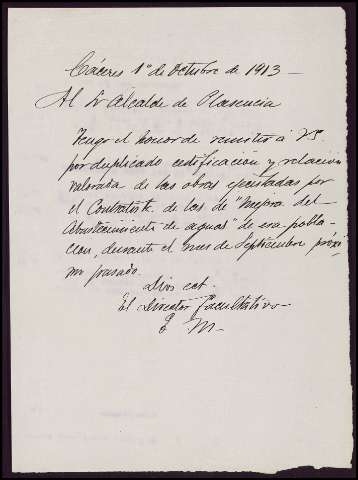 Cáceres 1º de Octubre de 1913 —
Al Sr Alcalde de Plasencia
Tengo el honor de remitir á VS.
por duplicado certificacion y relacion
valorada de las obras ejecutadas por
el Contratista de las de "Mejora del
Abastecimiento de aguas" de esa pobla-
cion, durante el mes de Septiembre próxi-
mo pasado.
Dios ect.
El Director facultativo
E M—